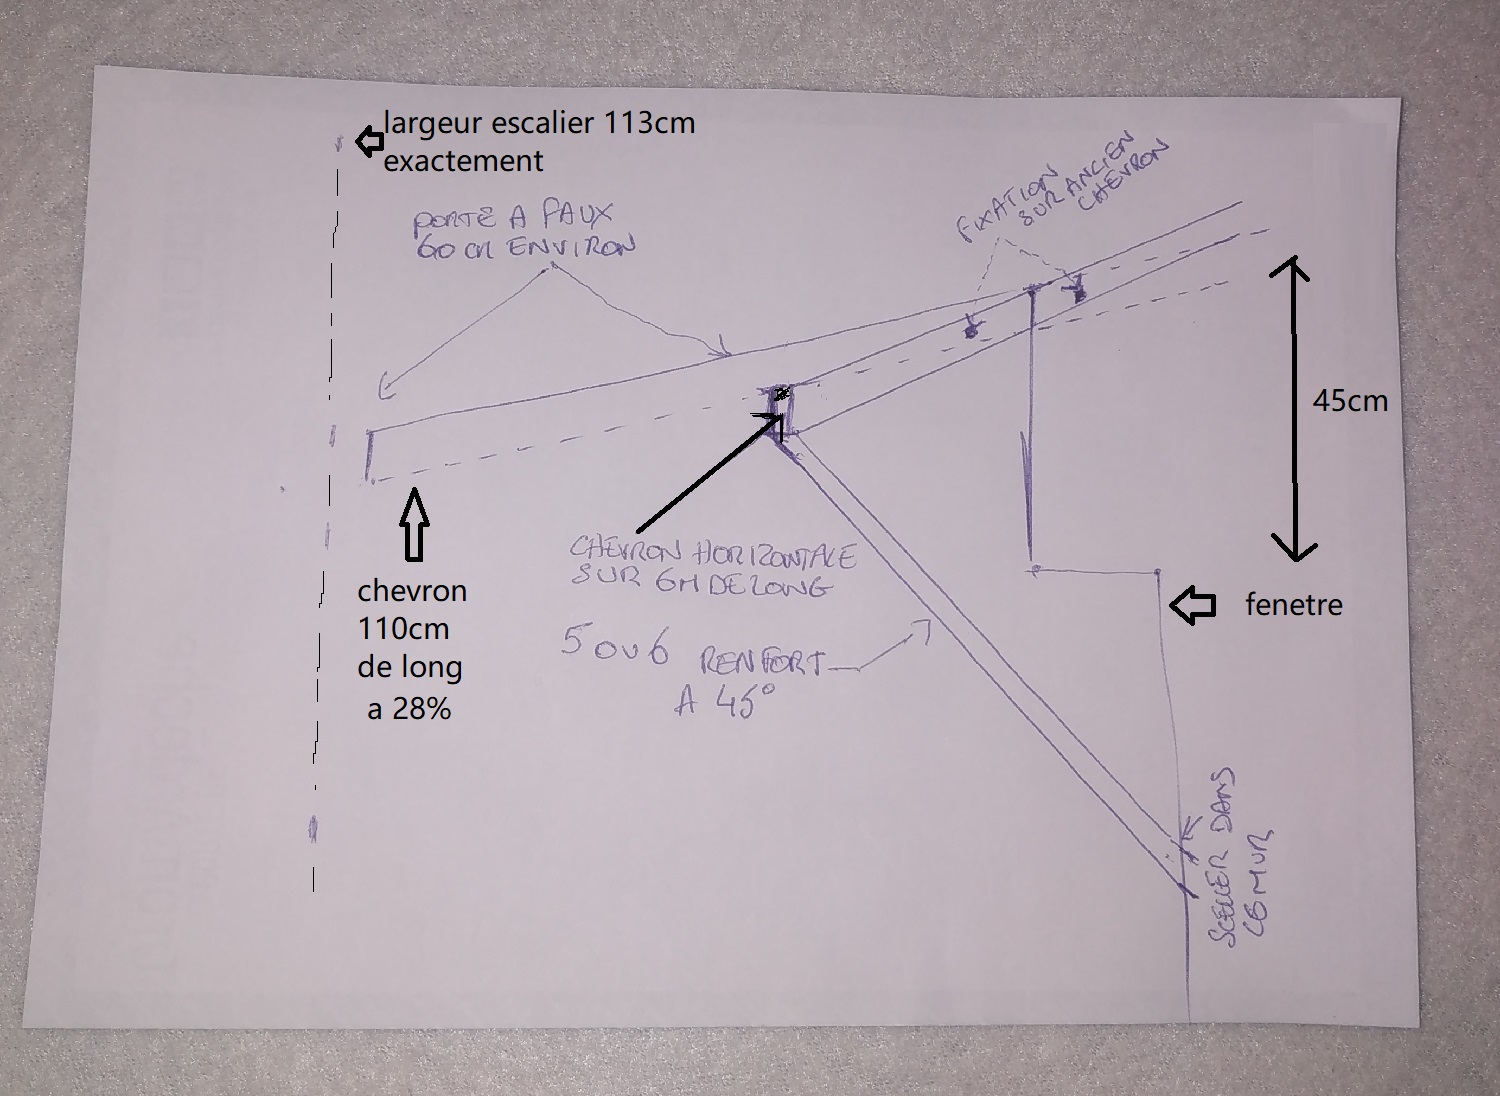 largeur escalier 113cm
exactement
PORTE A FAUX
60 CM ENVIRON
FIXATION
SUR ANCIEN
CHEVRON
45cm
CHEVRON HORIZONTALE
SUR 6M DE LONG
chevron
110cm
de long
a 28%
fenetre
5 OU 6 RENFORT
A 45°
SCELLER DANS
LE MUR